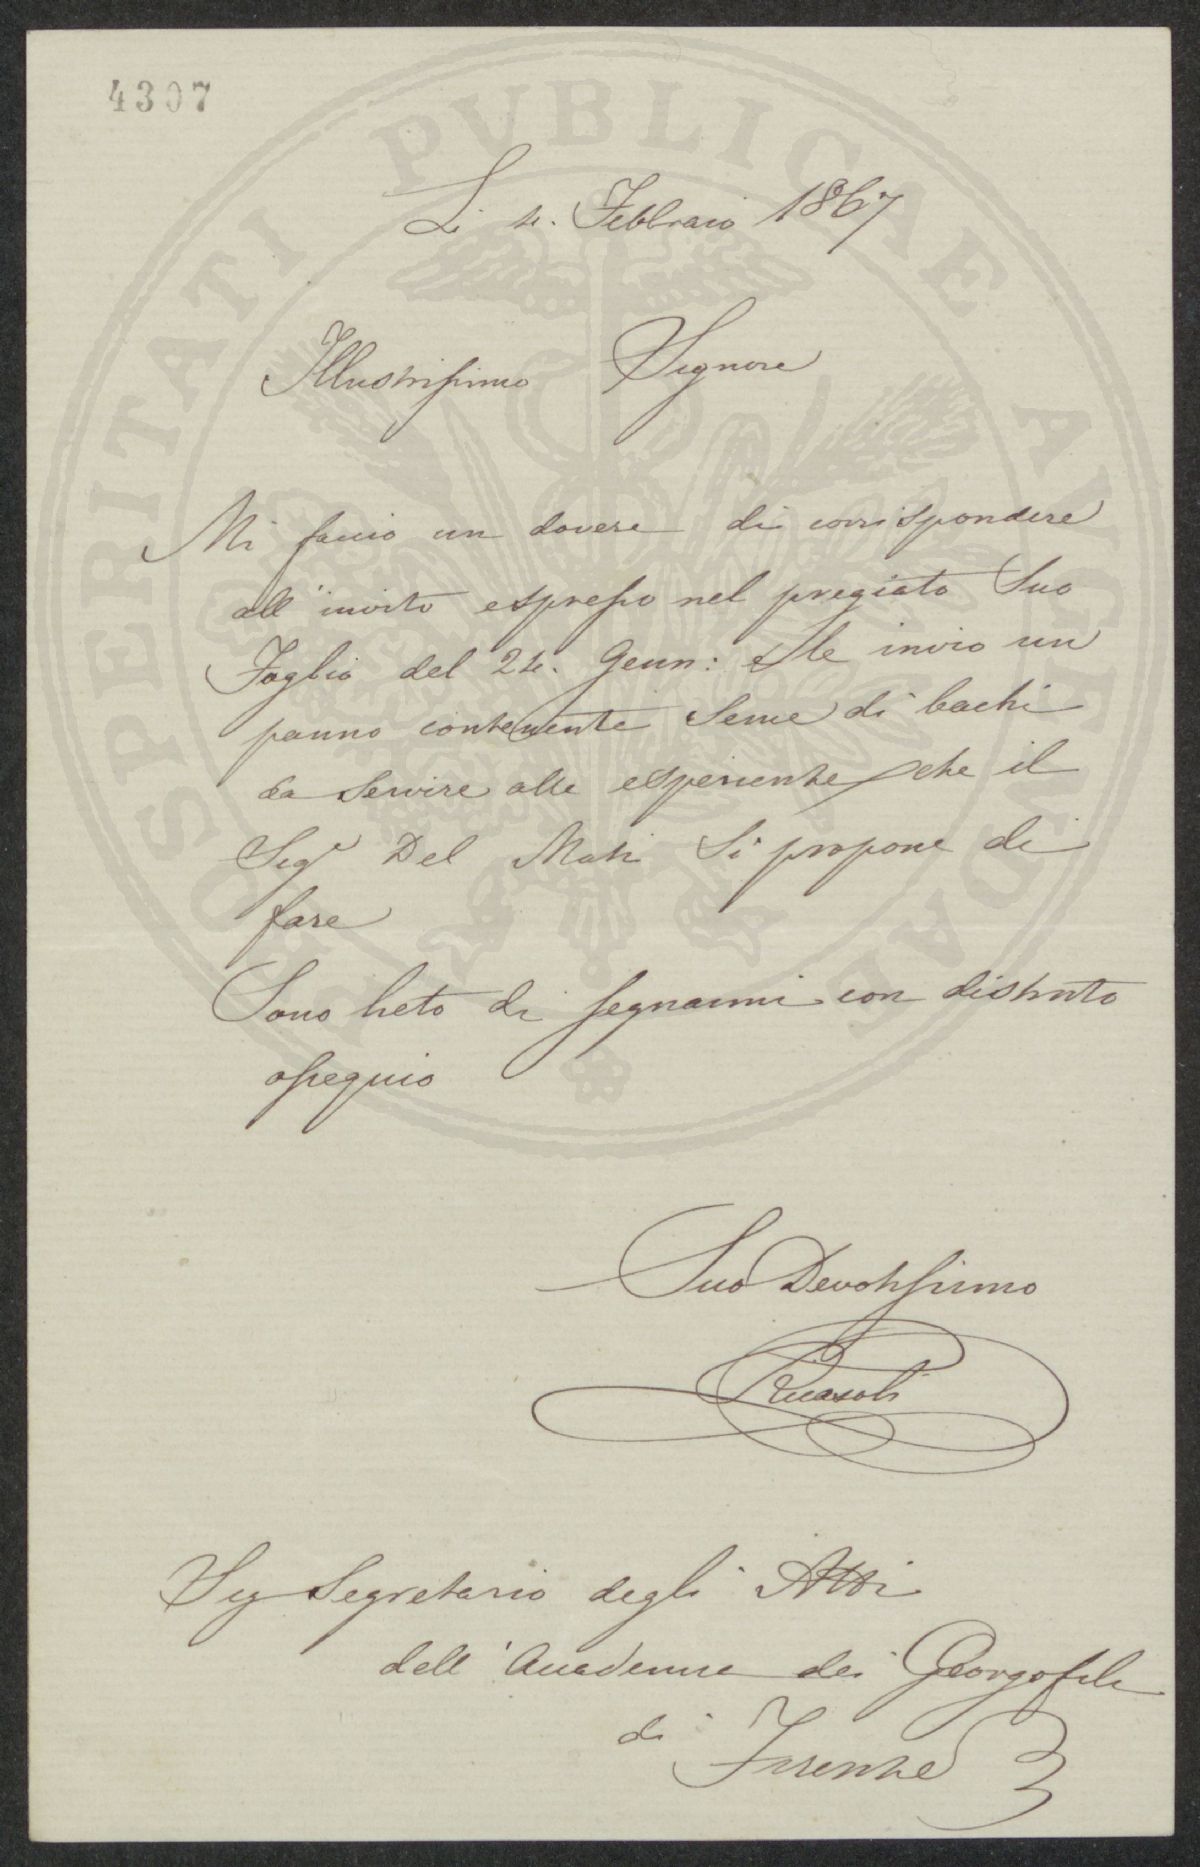 4307
PROSPERITATI PUBLICAE AUGENDAE
Li 4. Febbraio 1867
Illustrissimo Signore
Mi faccio un dovere di corrispondere
all'invito espresso nel pregiato Suo
Foglio del 24. Genn: e le invio un
panno contenente seme di bachi
da servire alle esperienze che il
Sigr Del Mati si propone di
fare
Sono lieto di segnarmi con distinto
ossequio
Suo Devotissimo
Ricasoli
Sig Segretario degli Atti
dell'Accademia dei Georgofili
di Firenze